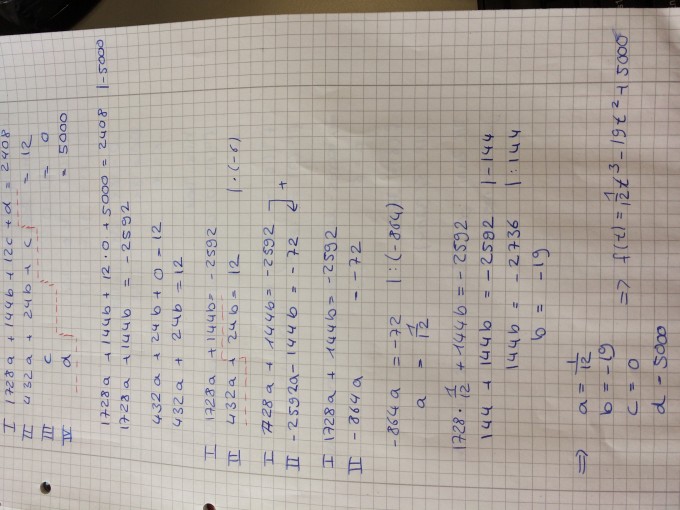 I 1728a + 144b + 12c + d = 2408
II 432a + 24b + c = 12
III c = 0
IV d = 5000
1728a + 144b + 12 · 0 + 5000 = 2408 |-5000
1728a + 144b = -2592
432a + 24b + 0 = 12
432a + 24b = 12
I 1728a + 144b = -2592
II 432a + 24b = 12 | · (-6)
I 1728a + 144b = -2592
II -2592a - 144b = -72 ] +
I 1728a + 144b = -2592
II -864a = -72
-864a = -72 | : (-864)
a = 1/12
1728 · 1/12 + 144b = -2592
144 + 144b = -2592 |-144
144b = -2736 | : 144
b = -19
=> a = 1/12
b = -19
c = 0 => f(t) = 1/12 t³ - 19t² + 5000
d - 5000